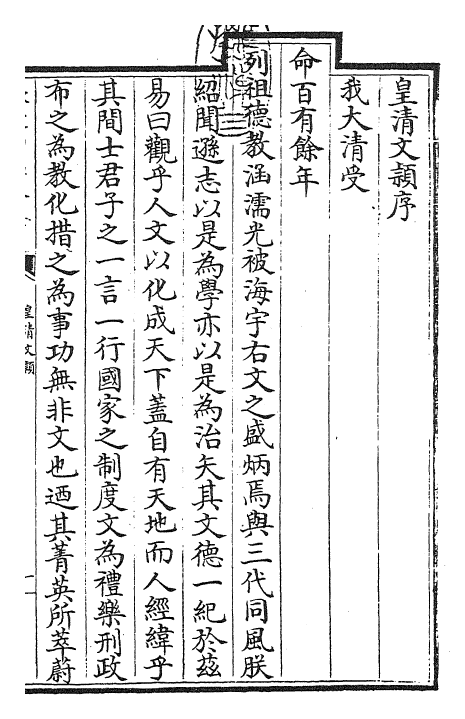 皇清文穎序
我大清受
命百有餘年
列祖德教涵濡光被海宇右文之盛炳焉與三代同風朕
紹聞遜志以是為學亦以是為治矣其文德一紀於茲
易曰觀乎人文以化成天下蓋自有天地而人經緯乎
其間士君子之一言一行國家之制度文為禮樂刑政
布之為教化措之為事功無非文也迺其菁英所萃蔚
皇清文穎